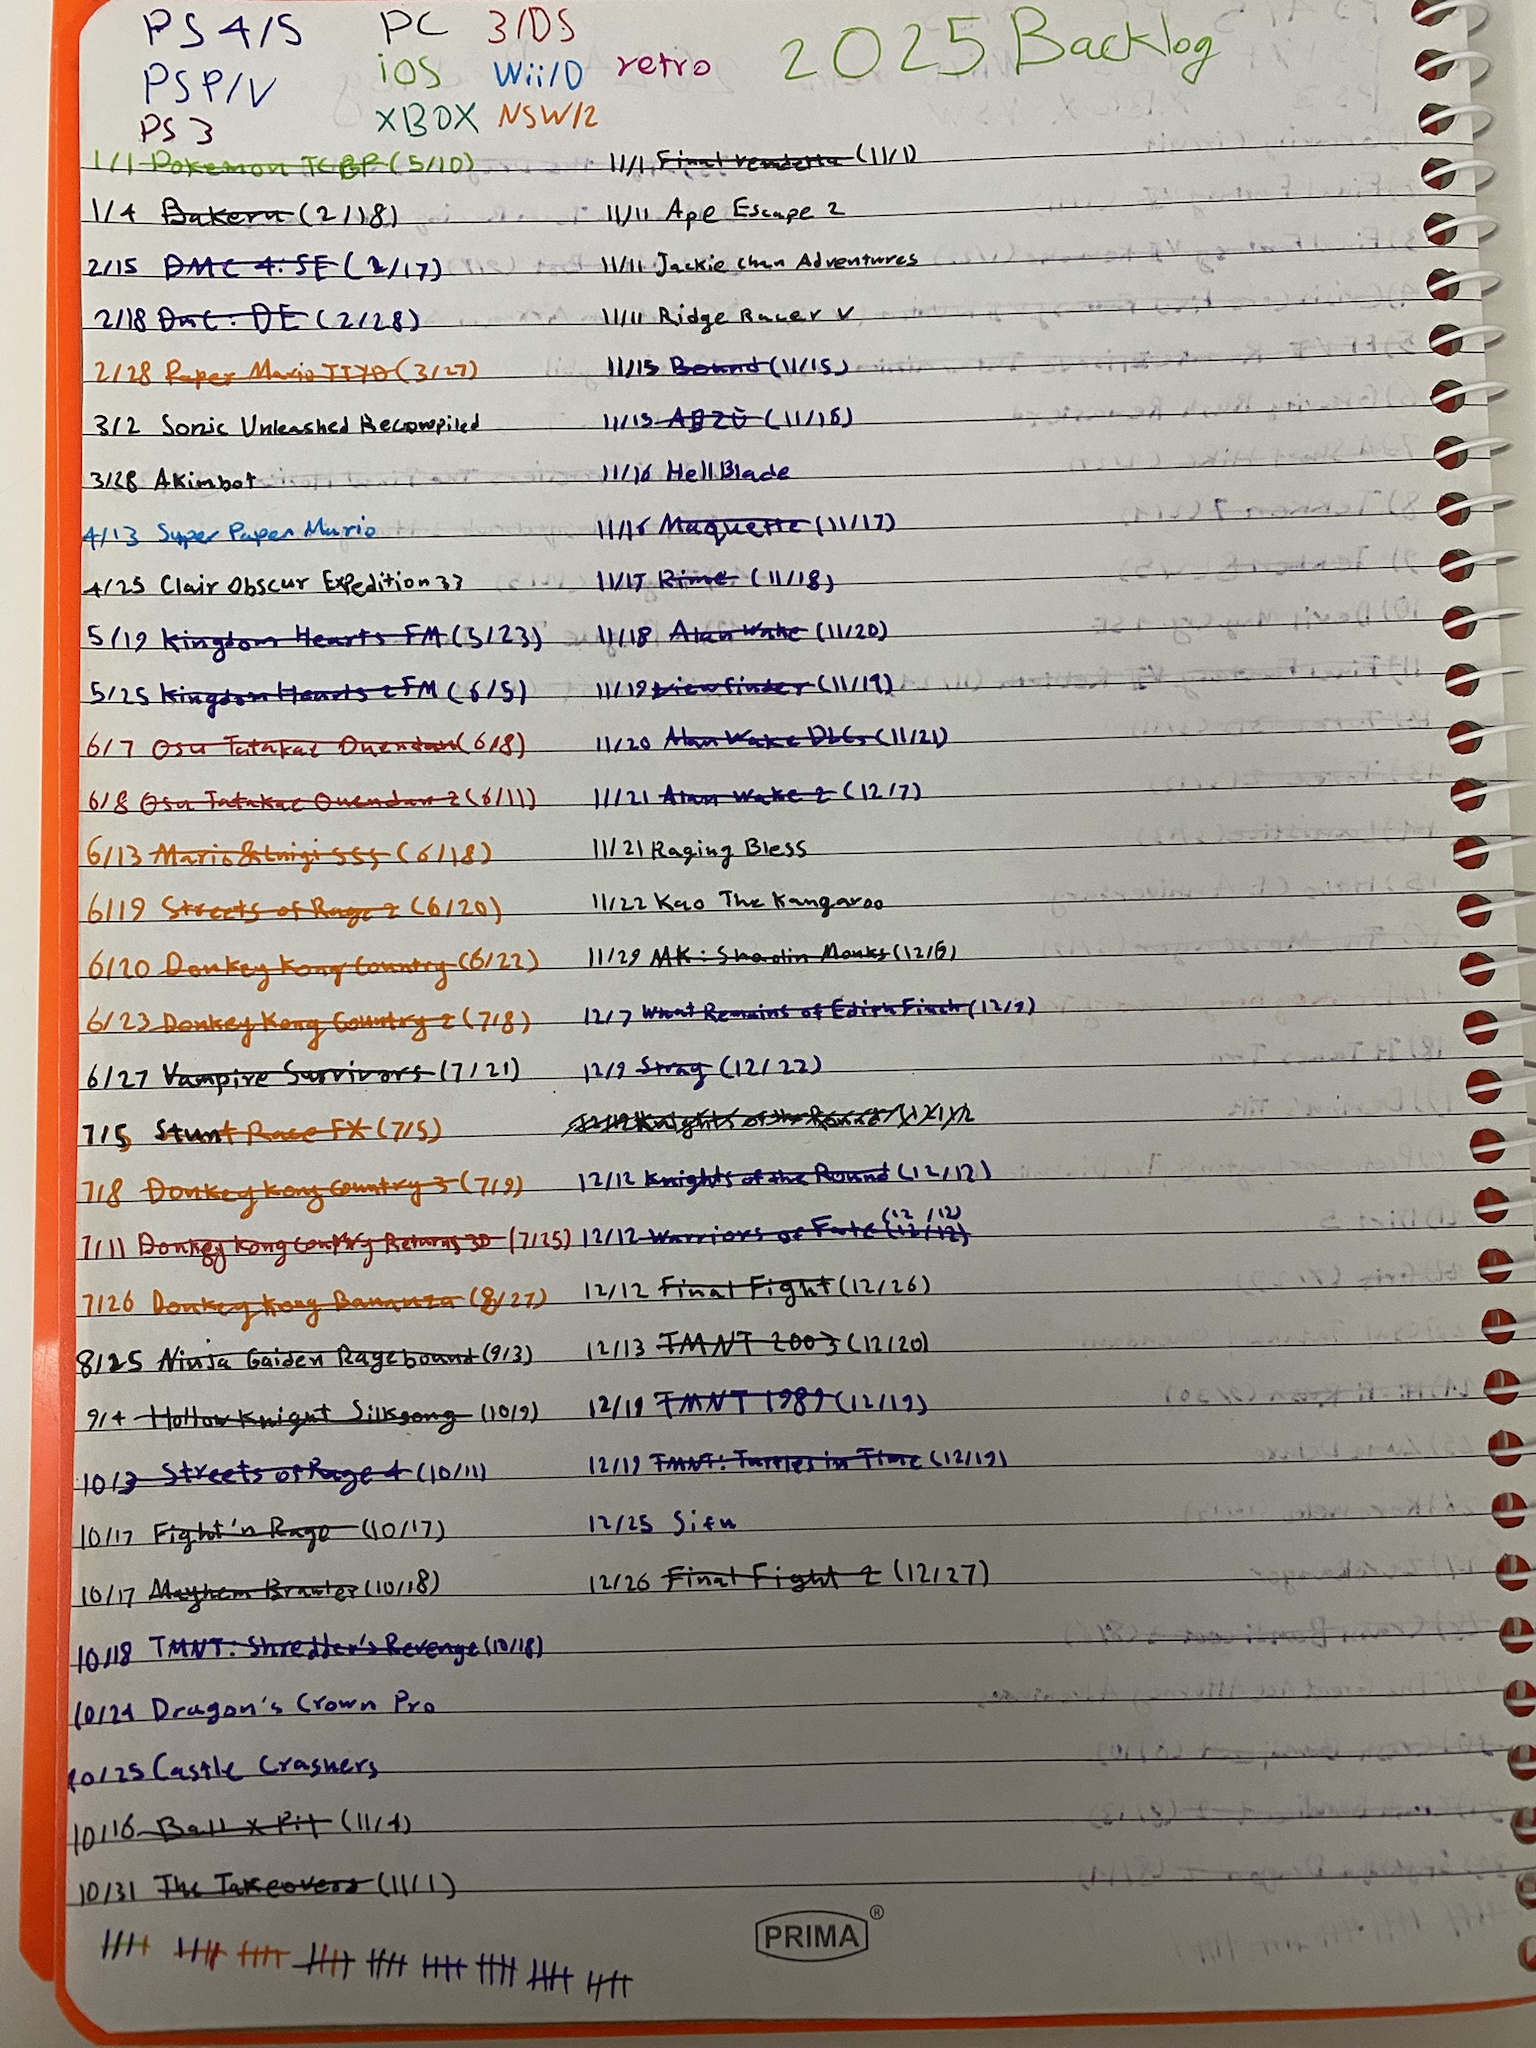 PS4/5 PC 3/DS 2025 Backlog
PSP/V iOS Wii/U retro
PS3 XBOX NSW/2
1/1 Pokemon TCGP (5/10)
1/4 Bakeru (2/18)
2/15 DMC 4: SE (2/17)
2/18 DmC: DE (2/28)
2/28 Paper Mario TTYD (3/27)
3/2 Sonic Unleashed Recompiled
3/28 Akimbot
4/13 Super Paper Mario
4/25 Clair Obscur Expedition 33
5/19 Kingdom Hearts FM (5/23)
5/25 Kingdom Hearts 2 FM (6/5)
6/7 Osu Tatakae Ouendan (6/8)
6/8 Osu Tatakae Ouendan 2 (6/11)
6/13 Mario & Luigi SSS (6/18)
6/19 Streets of Rage 2 (6/20)
6/20 Donkey Kong Country (6/22)
6/23 Donkey Kong Country 2 (7/8)
6/27 Vampire Survivors (7/21)
7/5 Stunt Race FX (7/5)
7/8 Donkey Kong Country 3 (7/9)
7/11 Donkey Kong Country Returns 3D (7/25)
7/26 Donkey Kong Bananza (8/27)
8/25 Ninja Gaiden Ragebound (9/3)
9/4 Hollow Knight Silksong (10/9)
10/3 Streets of Rage 4 (10/11)
10/17 Fight'n Rage (10/17)
10/17 Mayhem Brawler (10/18)
10/18 TMNT: Shredder's Revenge (10/18)
10/24 Dragon's Crown Pro
10/25 Castle Crashers
10/16 Ball x Pit (11/4)
10/31 The Takeover (11/1)
11/1 Final Vendetta (11/1)
11/11 Ape Escape 2
11/11 Jackie Chan Adventures
11/11 Ridge Racer V
11/15 Bound (11/15)
11/15 ABZÛ (11/16)
11/16 HellBlade
11/16 Maquette (11/17)
11/17 Rime (11/18)
11/18 Alan Wake (11/20)
11/19 Viewfinder (11/19)
11/20 Alan Wake DLCs (11/21)
11/21 Alan Wake 2 (12/7)
11/21 Raging Bless
11/22 Kao The Kangaroo
11/29 MK: Shaolin Monks (12/6)
12/7 What Remains of Edith Finch (12/9)
12/9 Stray (12/22)
12/12 Knights of the Round (12/12
12/12 Knights of the Round (12/12)
12/12 Warriors of Fate (12/12) (12/12)
12/12 Final Fight (12/26)
12/13 TMNT 2003 (12/20)
12/19 TMNT 1989 (12/19)
12/19 TMNT: Turtles in Time (12/19)
12/25 Sifu
12/26 Final Fight 2 (12/27)
PRIMA ®